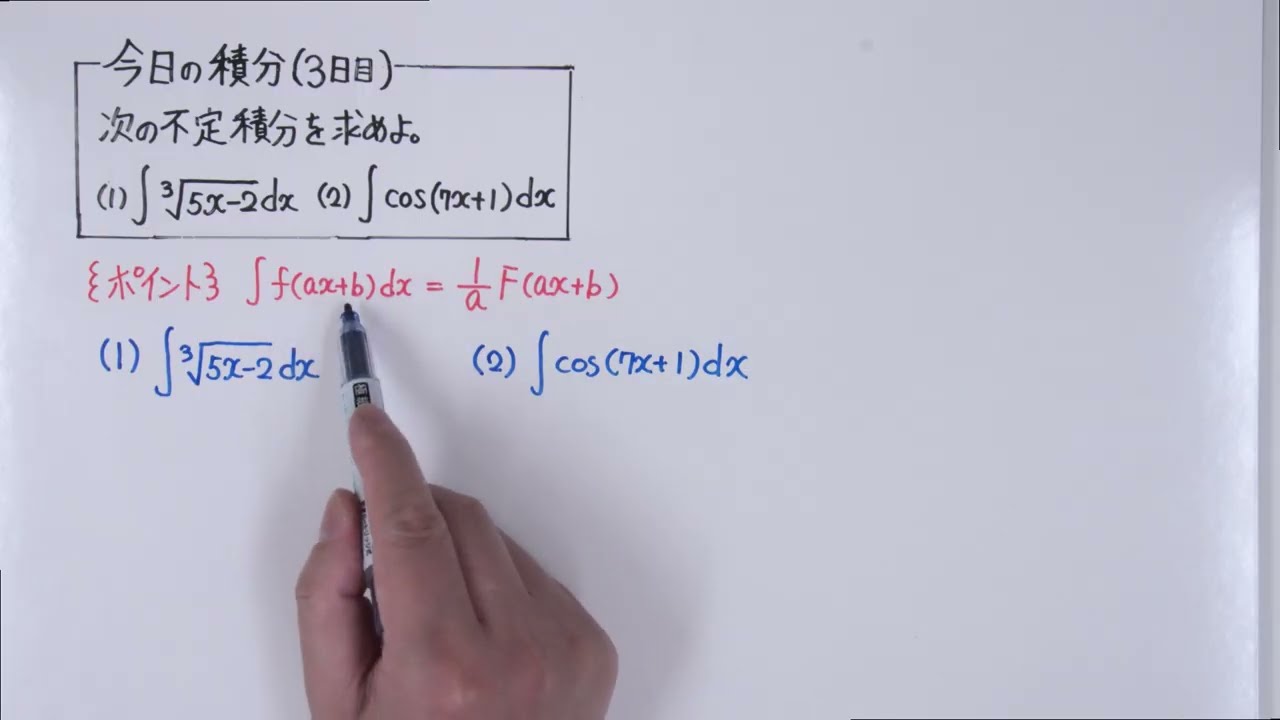 今日の積分(3日目)
次の不定積分を求めよ。
(1) ∫ ³√(5x-2) dx (2) ∫ cos(7x+1) dx
{ポイント} ∫ f(ax+b) dx = 1/a F(ax+b)
(1) ∫ ³√(5x-2) dx (2) ∫ cos(7x+1) dx